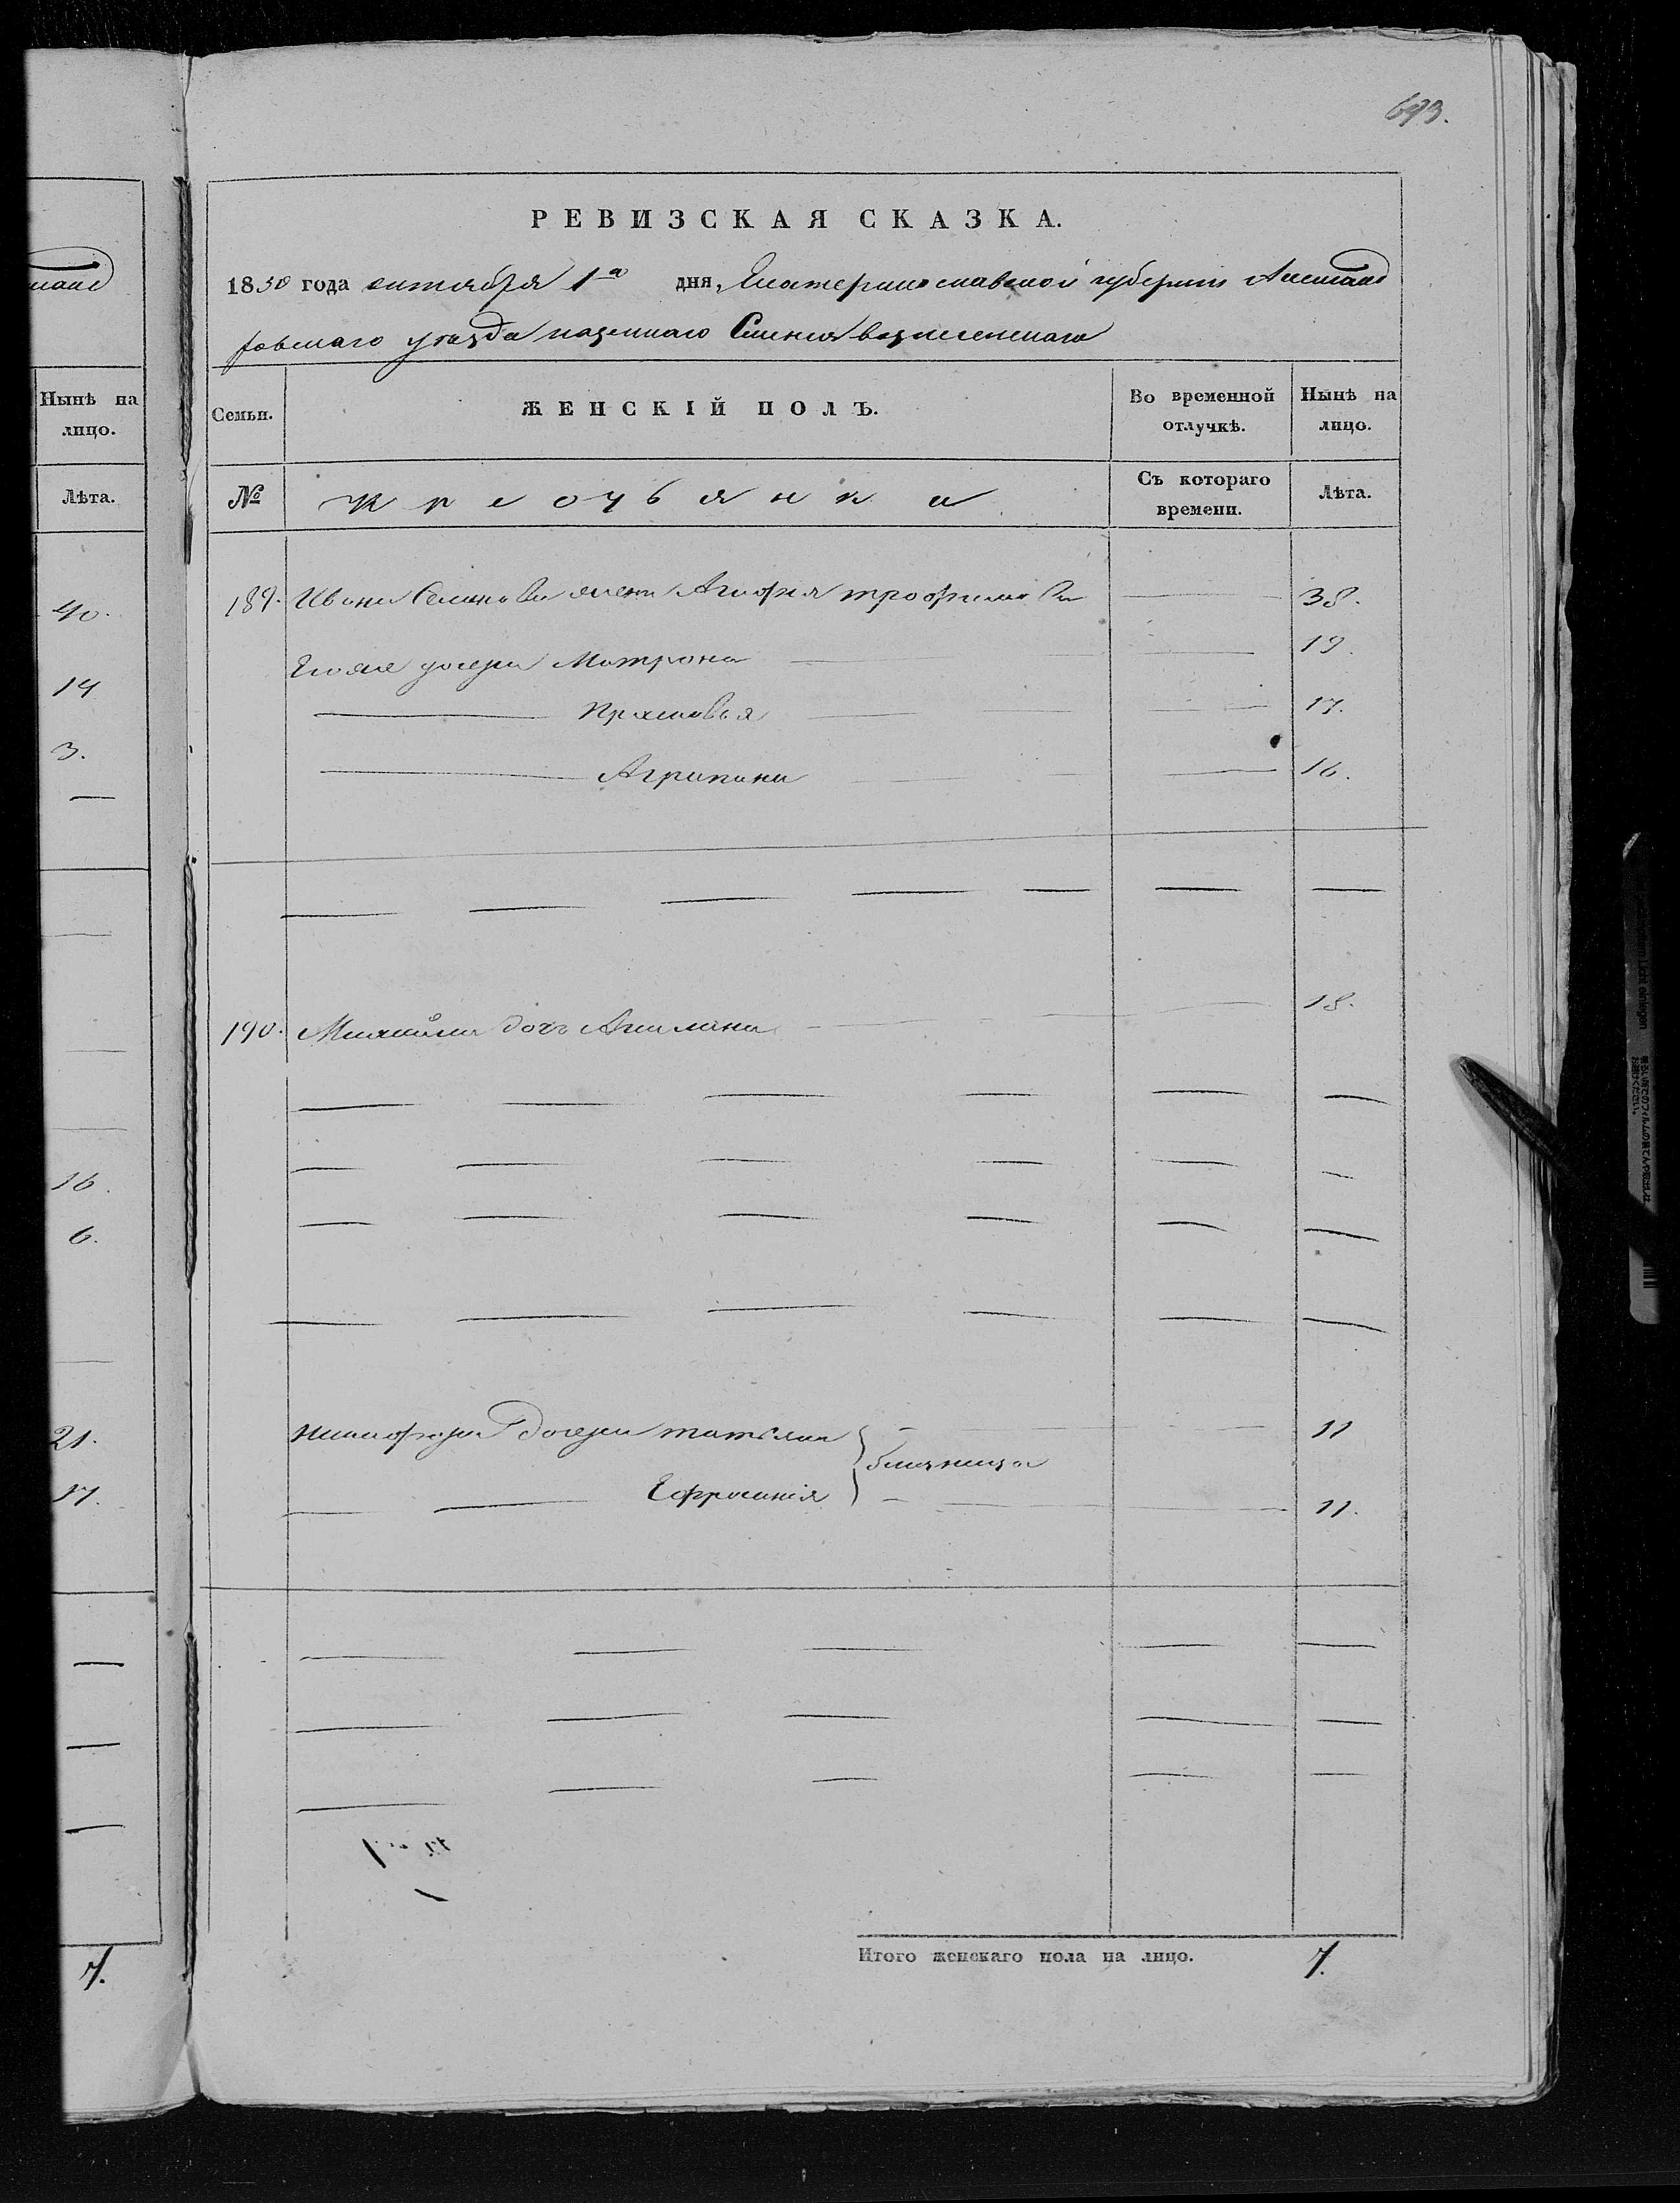 693.
РЕВИЗСКАЯ СКАЗКА.
1850 года октября 1го дня, Екатеринославской губернии Александ
ровскаго уѣзда казеннаго Селенія вознесенскаго
Нынѣ на лицо.
Лѣта.
40.
14
3.
16.
6.
21.
17.
7.
Семьи. ЖЕНСКІЙ ПОЛЪ. Во временной отлучкѣ. Нынѣ на лицо.
№ крестьянка Съ котораго времени. Лѣта.
189. Ивана Семенова жена Агафия трофимова 38.
Его же дочери Матрона 19.
Прасковья 17.
Агрипина 16.
190. дочь Акилина 18.
Никифора дочери татьяна 11
близнецы
Ефросинія 11.
Итого женскаго пола на лицо. 7.